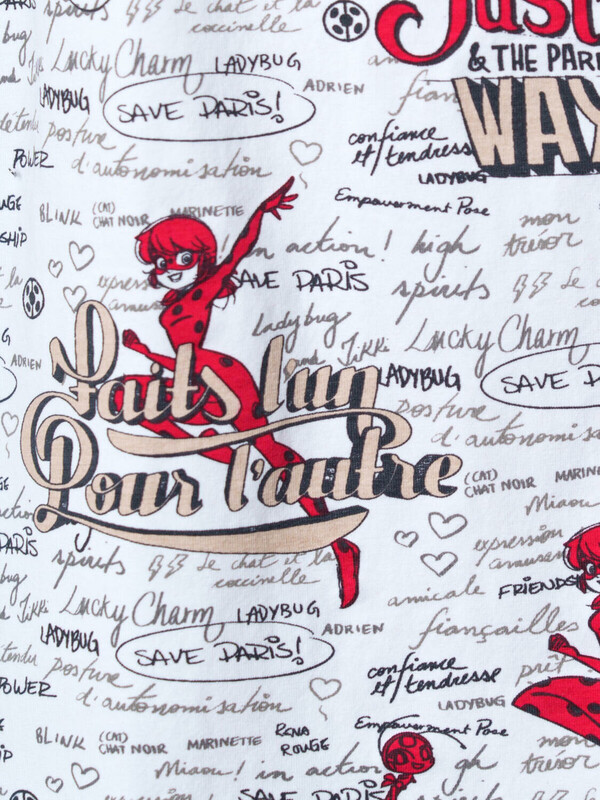 spirits Le chat et la
coccinelle
Just
& THE PARI
WAY
bug
Lucky Charm LADYBUG
ADRIEN
LADYBUG
SAVE PARIS!
fian
détendu posture
confiance
et/tendress
POWER d'autonomisation
LADYBUG
Empowerment Pose
BLINK (CAT)
CHAT NOIR MARINETTE
mon
trésor
! in action! high
SHIP
express
amuse
SAVE PARIS
spirits Le c
Ladybug
and Tikki Lucky Charm
ADRIEN
LADYBUG
SAVE P
Faits l'un
Pour l'autre
posture
d'autonomisa
(CAT)
CHAT NOIR MARINE
Miaou!
action
PARIS
expression
amusen
spirits Le chat et la
coccinelle
FRIENDS
amicale
bug
Tikki Lucky Charm LADYBUG
ADRIEN
fiançailles
LADYBUG
SAVE PARIS!
détendu posture
confiance
et/tendresse
prêt
POWER d'autonomisation
LADYBUG
Empowerment Pose
BLINK (CAT)
CHAT NOIR MARINETTE RENA
ROUGE
mon
trésor
Miaou! in action gh
SHIP
SAVE PARIS
spirits